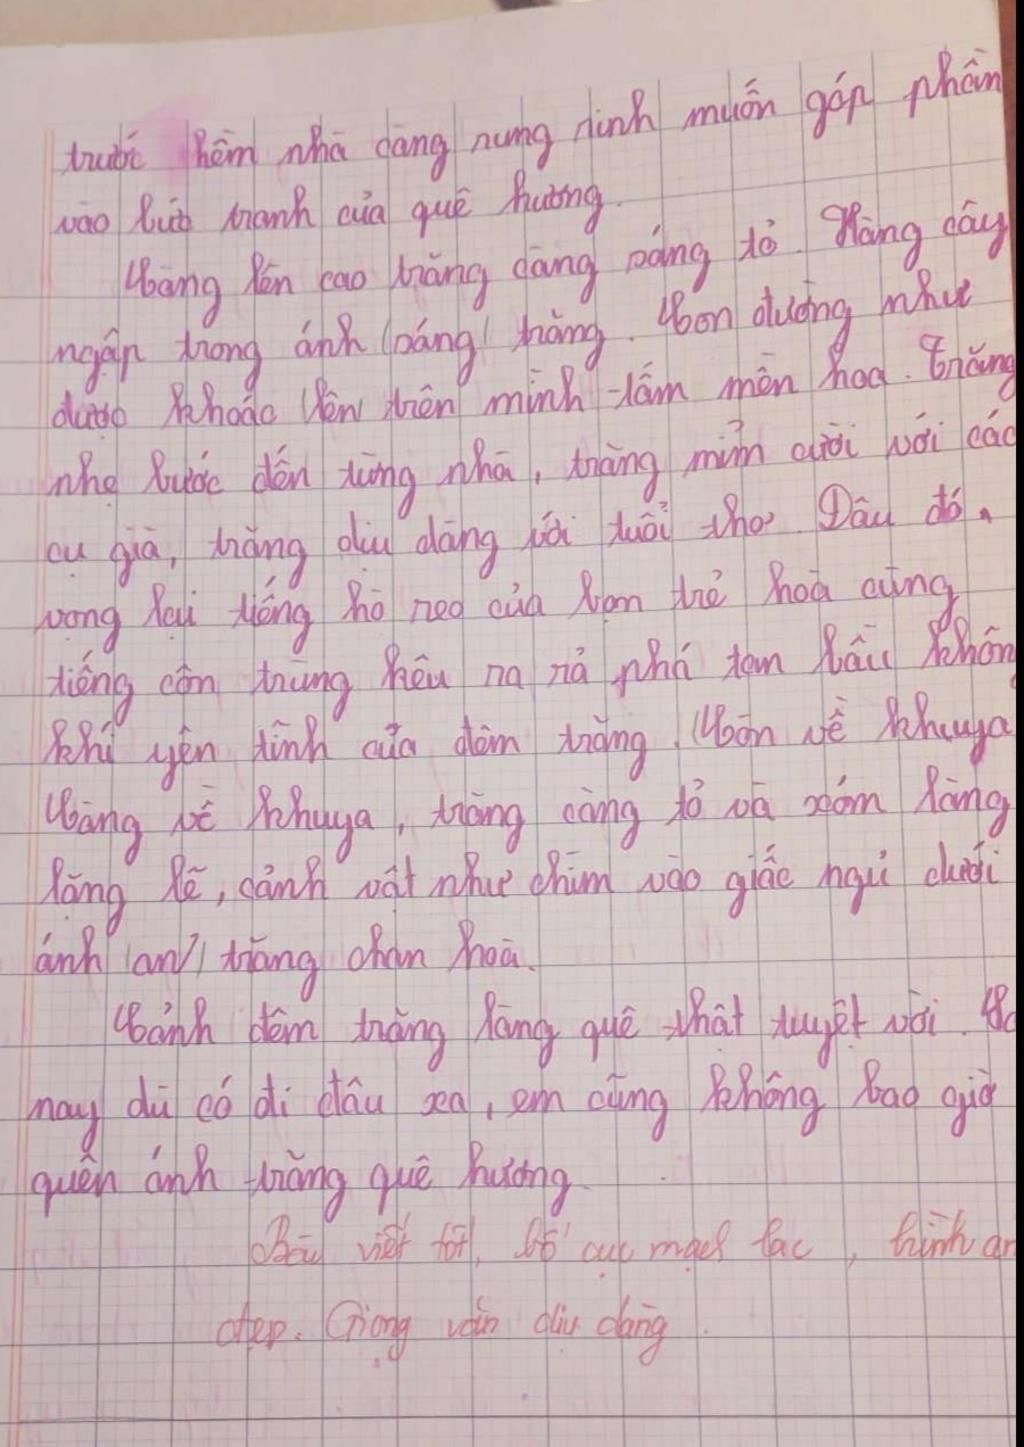 trước thềm nhà đang rung rinh muốn góp phần
vào bức tranh của quê hương.
Càng lên cao trăng càng sáng tỏ. Hàng cây
ngập trong ánh (sáng) trăng. Con đường như
được khoác (lên) trên mình tấm mền hoa. Trăng
nhẹ bước đến từng nhà, trăng mỉm cười với các
cụ già, trăng dịu dàng với tuổi thơ. Đâu đó,
vọng lại tiếng hò reo của bọn trẻ hoà cùng
tiếng côn trùng kêu ra rả phá tan bầu không
khí yên tĩnh của đêm trăng. Còn về khuya
Càng về khuya, trăng càng tỏ và xóm làng
lặng lẽ, cảnh vật như chìm vào giấc ngủ dưới
ánh (an) trăng chan hoà.
Cảnh đêm trăng làng quê thật tuyệt vời.
nay dù có đi đâu xa, em cũng không bao giờ
quên ánh trăng quê hương.
Bài viết tốt, bố cục mạch lạc, hình ản
đẹp. Giọng văn dịu dàng.